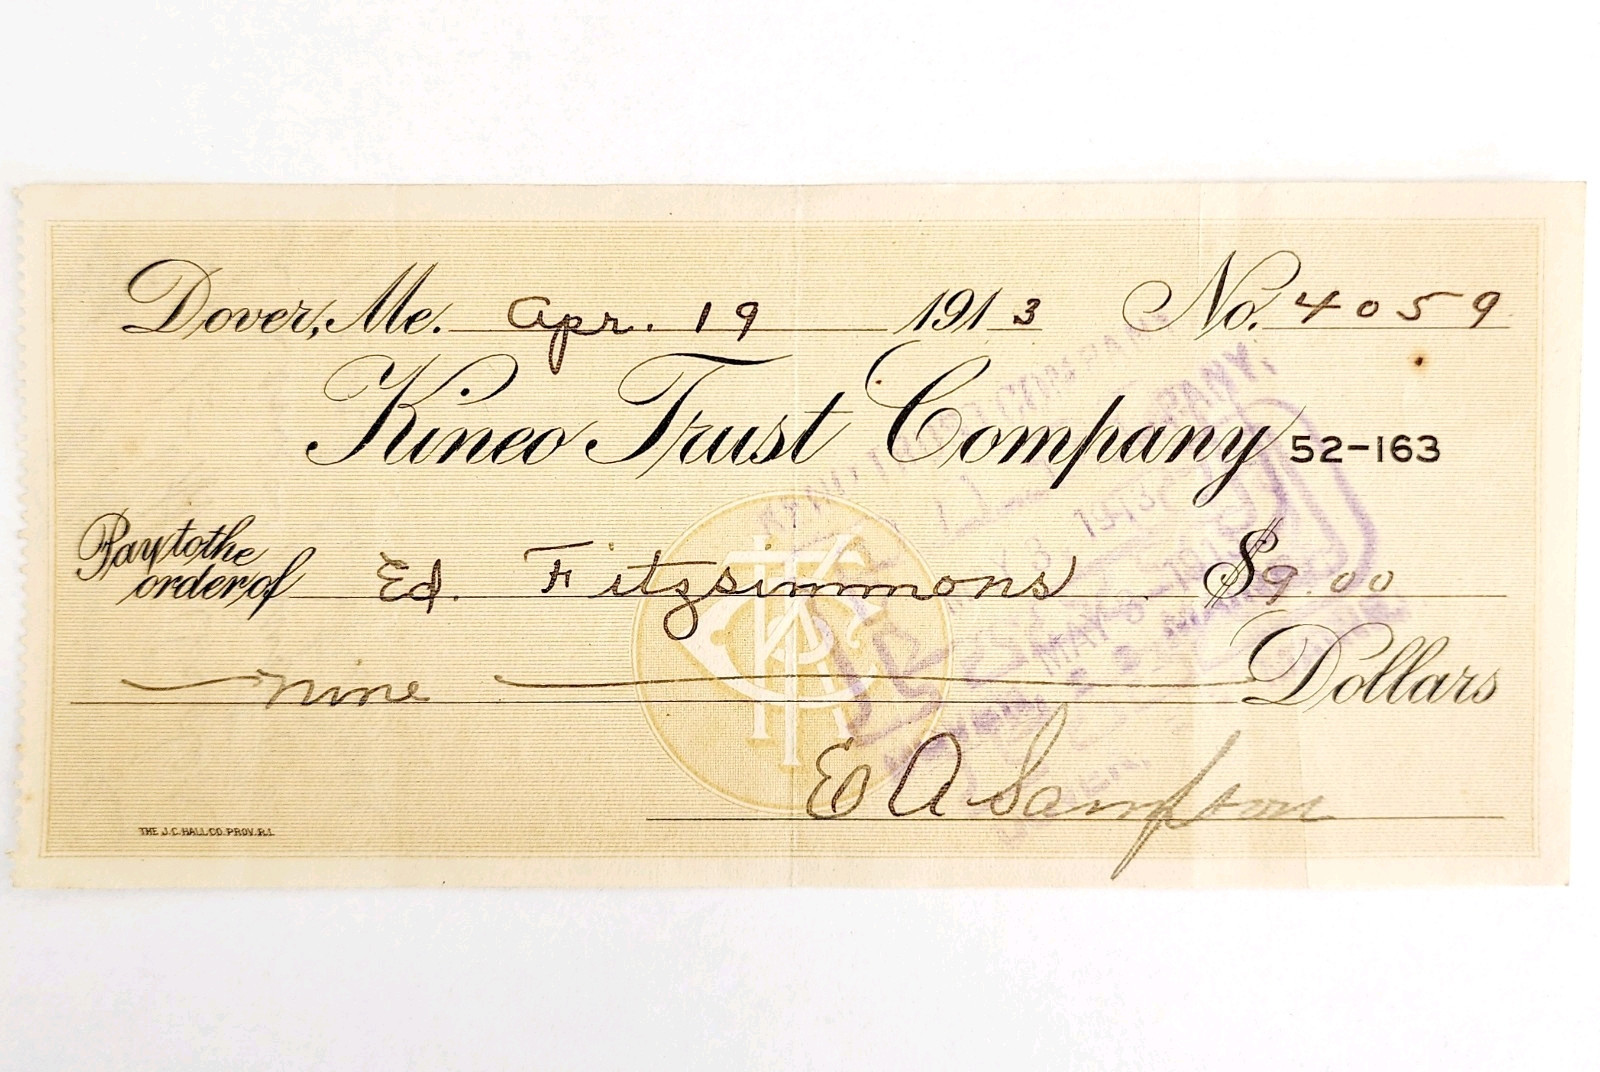 Dover, Me. Apr. 19 1913 No. 4059
Kineo Trust Company 52-163
Pay to the order of Ed. Fitzsimmons $9.00
nine Dollars
E A Sampson
THE J.C. HALL CO. PROV. R.I.
KTC
MAY 3 1913